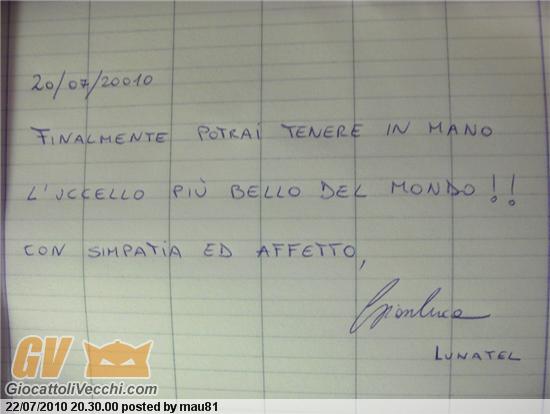 20/07/20010
FINALMENTE POTRAI TENERE IN MANO
L'UCCELLO PIÙ BELLO DEL MONDO!!
CON SIMPATIA ED AFFETTO,
Gianluca
LUNATEL
GV
GiocattoliVecchi.com
22/07/2010 20.30.00 posted by mau81